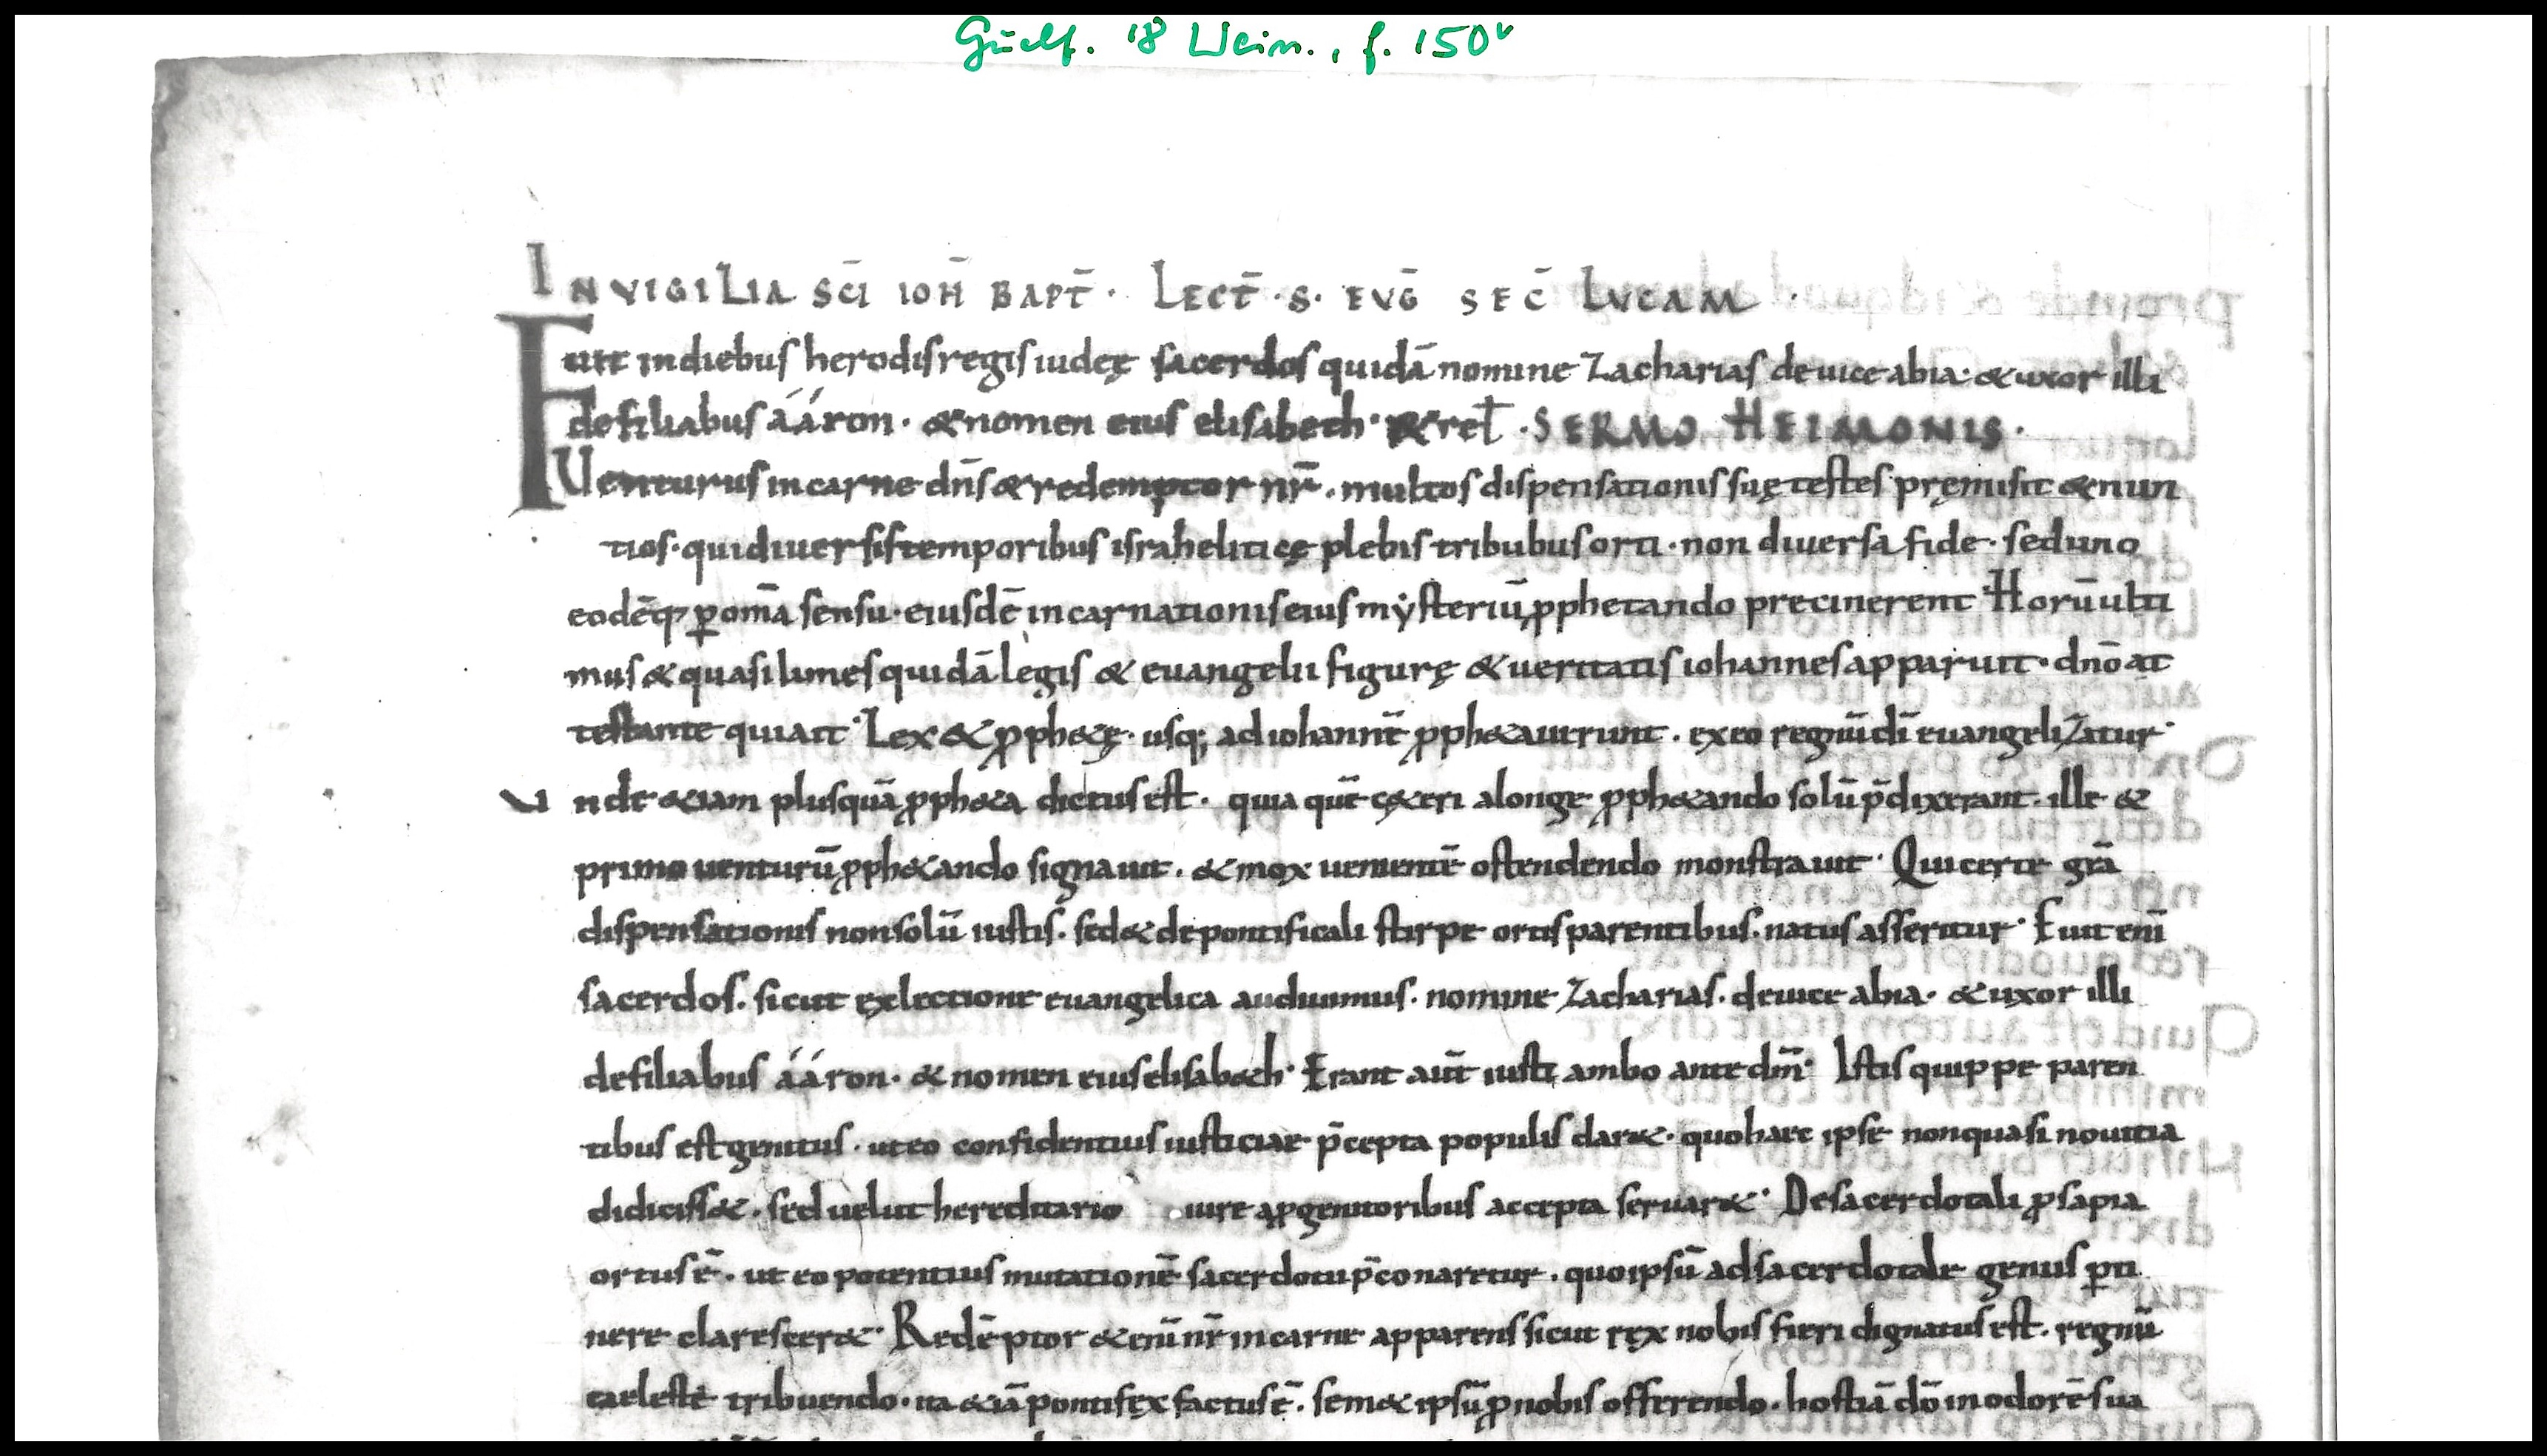 Guelf. 18 Weim., f. 150v
IN VIGILIA SCĪ IOH̄ BAPT̄ · LECT̄ · S · EVḠ SEC̄ LVCAM ·
Fuit indiebus herodis regis iudeę sacerdos quidā nomine Zacharias deuice abia · & uxor illi
defiliabus ááron · & nomen eius elisabeth · & rel̄ · SERMO HEIMONIS ·
Uenturus incarne dn̄s & redemptor nr̄ · multos dispensationis suę testes pręmisit & nun
tios · qui diuersis temporibus israheliticę plebis tribubus orti · non diuersa fide · sed uno
eodēq; ꝑ om̄a sensu · eiusdē incarnationis eius mẏsteriū ꝓphetando precinerent Horū ulti
mus & quasi limes quidā legis & euangelii figurę & ueritatis iohannes apparuit · dn̄o at
testante qui ait · Lex & ꝓph&ę · usq; ad iohannē ꝓph&auerunt · ex eo regnū dī euangelizatur ·
Unde &iam plusquā ꝓph&a dictus est · quia quē c&eri alonge ꝓph&ando solū p̄dixerant · ille &
primo uenturū ꝓph&ando signauit · & mox uenientē ostendendo monstrauit · Qui certe grā
dispensationis non solū iustis · sed & de pontificali stirpe ortis parentibus · natus asseritur · Fuit enī
sacerdos · sicut ex lectione euangelica audiuimus · nomine Zacharias · deuice abia · & uxor illi
defiliabus ááron · & nomen eius elisab&h · Erant aūt iusti ambo ante dm̄ · Istis quippe paren
tibus est genitus · ut eo confidentius iusticiae p̄cepta populis dar& · quo haec ipse non quasi nouitia
didiciss& · sed uelut hereditario iure a ꝓgenitoribus accepta seruar& · De sacerdotali ꝓsapia
ortus ē · ut eo potentius mutationē sacerdotii p̄conaretur · quo ipsū ad sacerdotale genus ꝑti
nere clarescer& · Redēptor &enī nr̄ in carne apparens sicut rex nobis fieri dignatus est · regnū
caeleste tribuendo · ita &iā pontifex factus ē · sem&ipsū ꝓ nobis offerendo · hostiā dō in odorē sua